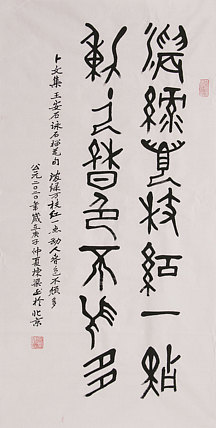 濃綠萬枝紅一點
動人春色不須多
卜文集王安石詠石榴花句濃綠万枝紅一点动人春色不須多
公元二〇二〇年歲在庚子仲夏於北京